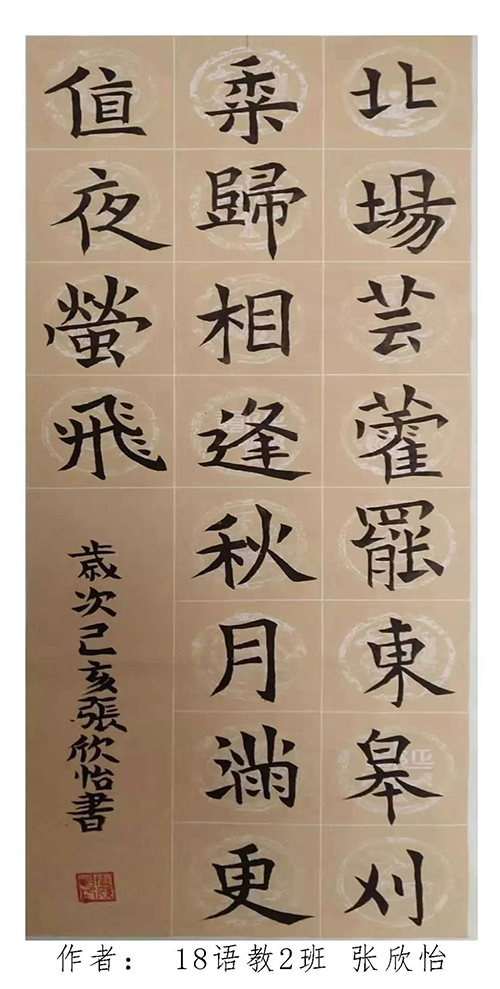 北場芸藿罷東皋刈
黍歸相逢秋月滿更
值夜螢飛
歲次己亥張欣怡書
作者： 18语教2班 张欣怡